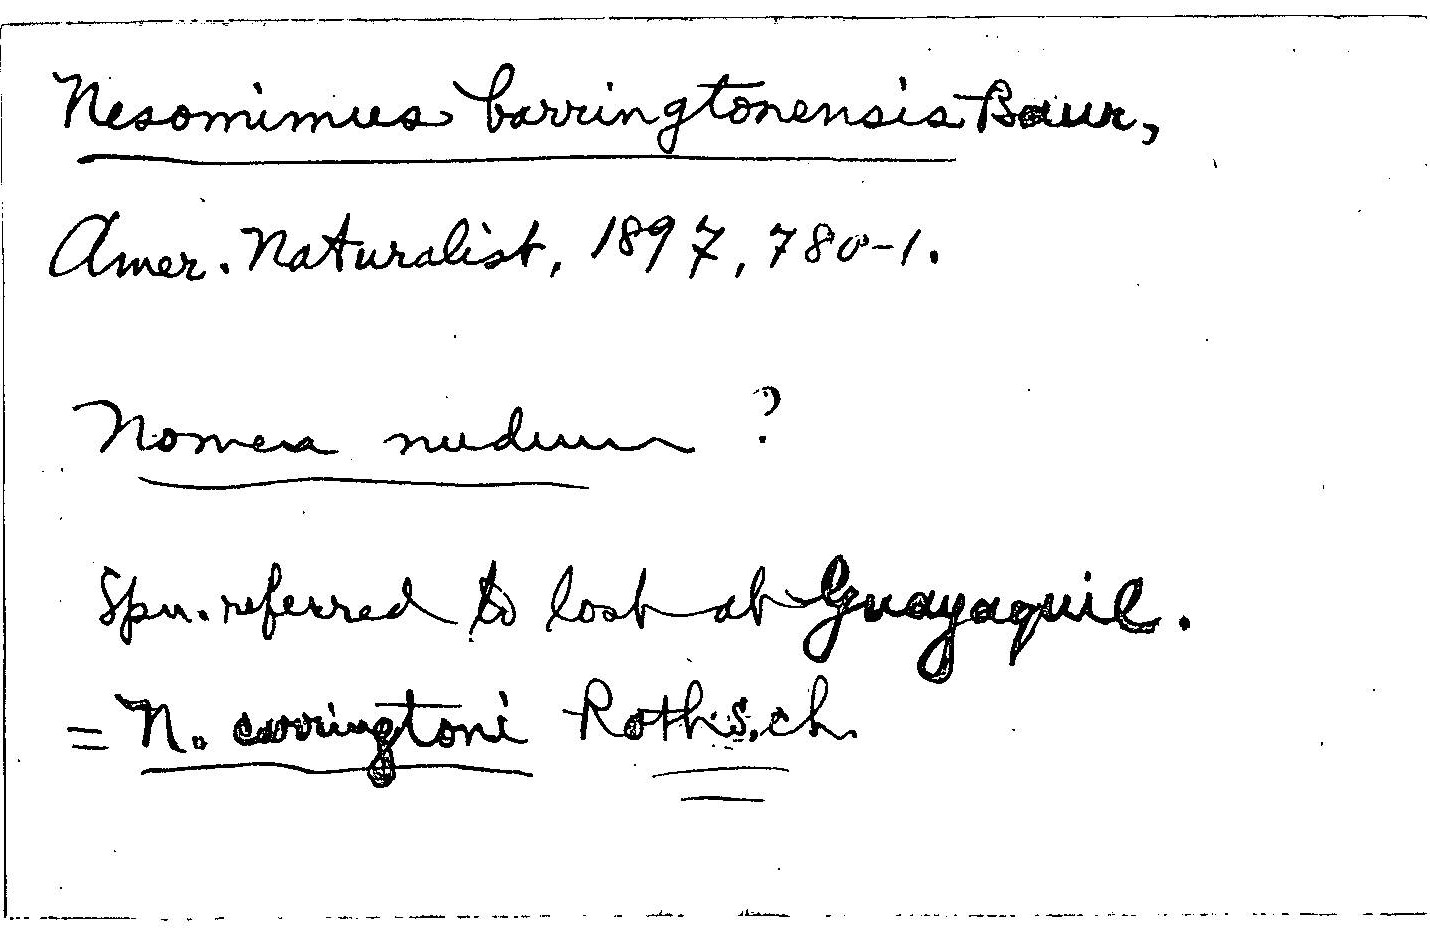 Nesomimus barringtonensis Baur,
Amer. Naturalist, 1897, 780-1.
Nomen nudum ?
Spn. referred to lost at Guayaquil.
= N. carringtoni Rothsch.